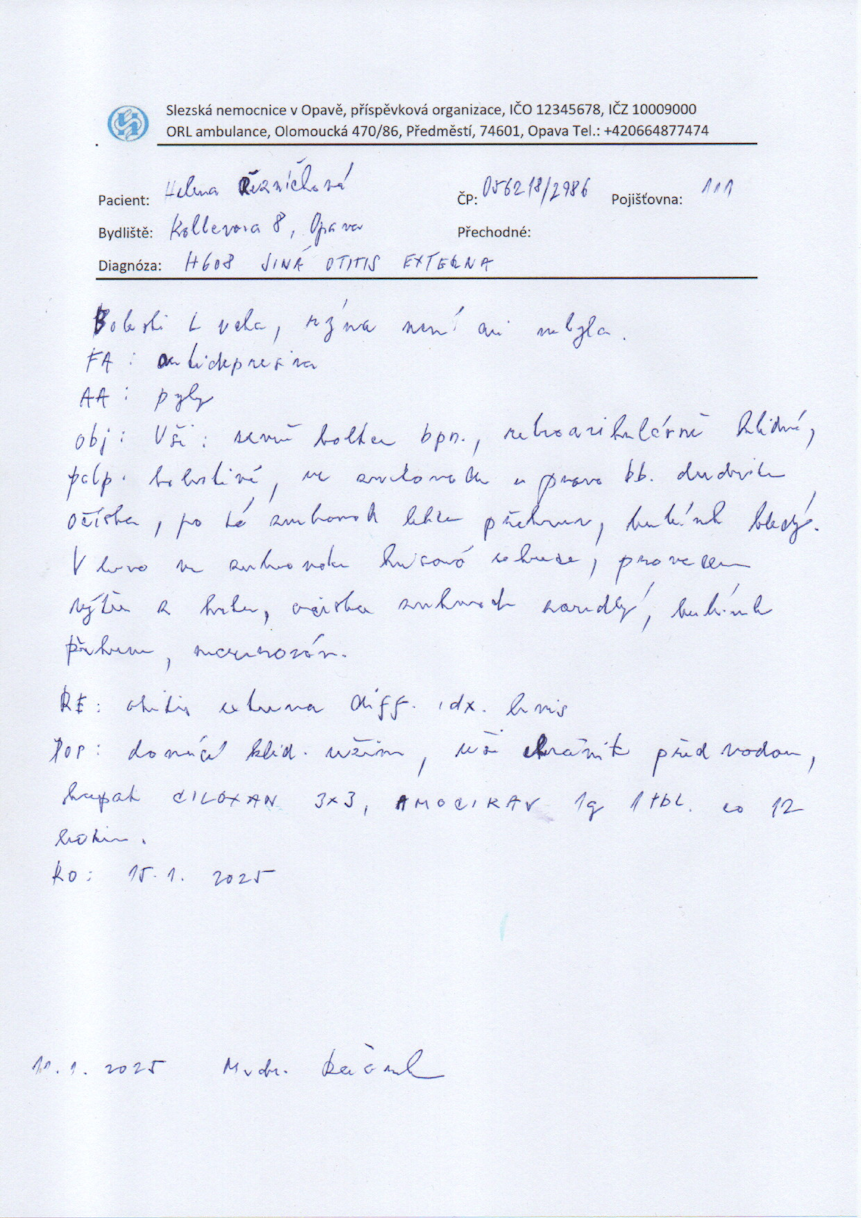 Slezská nemocnice v Opavě, příspěvková organizace, IČO 12345678, IČZ 10009000
ORL ambulance, Olomoucká 470/86, Předměstí, 74601, Opava Tel.: +420664877474
Pacient: Helena Řezníčková ČP: 056218/2986 Pojišťovna: 111
Bydliště: Kollerova 8, Opava Přechodné:
Diagnóza: H608 JINÁ OTITIS EXTERNA
Bolesti L ucha, rýma není ani nebyla.
FA: antidepresiva
AA: pyly
obj: Uši: zevně boltce bpn., retroaurikulárně klidné,
palp. bolestivé, ve zvukovodu vpravo
očista, po té zvukovod lehce překrven, bubínek bledý.
Vlevo ve zvukovodu hnisavá sekrece, proveden
výtěr z ucha, očista zvukovod zarudlý, bubínek
překrven,
RE: otitis externa diff. idx. l. sin
DOP: domácí klid. režim, uši chránit před vodou,
kapat CILOXAN 3x3, AMOCIKAV 1g 1 tbl. co 12
hodin.
KO: 15.1. 2025
11.1. 2025 Mudr.